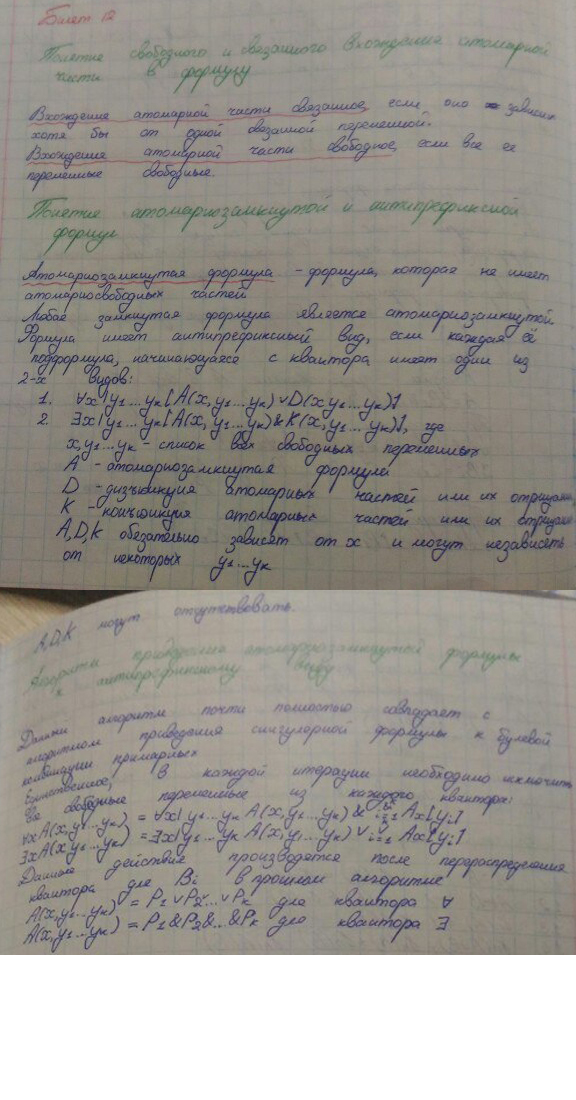 Билет 12
Понятие свободного и связанного вхождения атомарной
части в формулу
Вхождение атомарной части связанное, если оно зависит
хотя бы от одной связанной переменной.
Вхождение атомарной части свободное, если все ее
переменные свободные.
Понятие атомарнозамкнутой и антипрефиксной
формул
Атомарнозамкнутая формула - формула, которая не имеет
атомарносвободных частей
Любая замкнутая формула является атомарнозамкнутой
Формула имеет антипрефиксный вид, если каждая её
подформула, начинающаяся с квантора имеет один из
2-х видов:
1. ∀x|y₁...yₖ[A(x,y₁...yₖ)∨D(x y₁...yₖ)]
2. ∃x|y₁...yₖ[A(x,y₁...yₖ)&K(x,y₁...yₖ)], где
x,y₁...yₖ - список всех свободных переменных
A - атомарнозамкнутая формула
D - дизъюнкция атомарных частей или их отрицаний
K - конъюнкция атомарных частей или их отрицаний
A,D,K обязательно зависят от x и могут независеть
от некоторых y₁...yₖ
A,D,K могут отсутствовать.
Алгоритм приведения атомарнозамкнутой формулы
к антипрефиксному виду
Данный алгоритм почти полностью совпадает с
алгоритмом приведения сингулярной формулы к булевой
комбинации примарных
Единственное, в каждой итерации необходимо исключить
все свободные переменные из каждого квантора:
∀xA(x,y₁...yₖ) = ∀x|y₁...yₖ A(x,y₁...yₖ) & ᵏᵢ₌₁ Aₓ[yᵢ]
∃xA(x,y₁...yₖ) = ∃x|y₁...yₖ A(x,y₁...yₖ) ∨ᵢ₌₁ Aₓ[yᵢ]
Данное действие производится после перераспределения
квантора для Bᵢ в прошлом алгоритме
A(x,y₁...yₖ) = P₁∨P₂...∨Pₖ для квантора ∀
A(x,y₁...yₖ) = P₁&P₂&..&Pₖ для квантора ∃